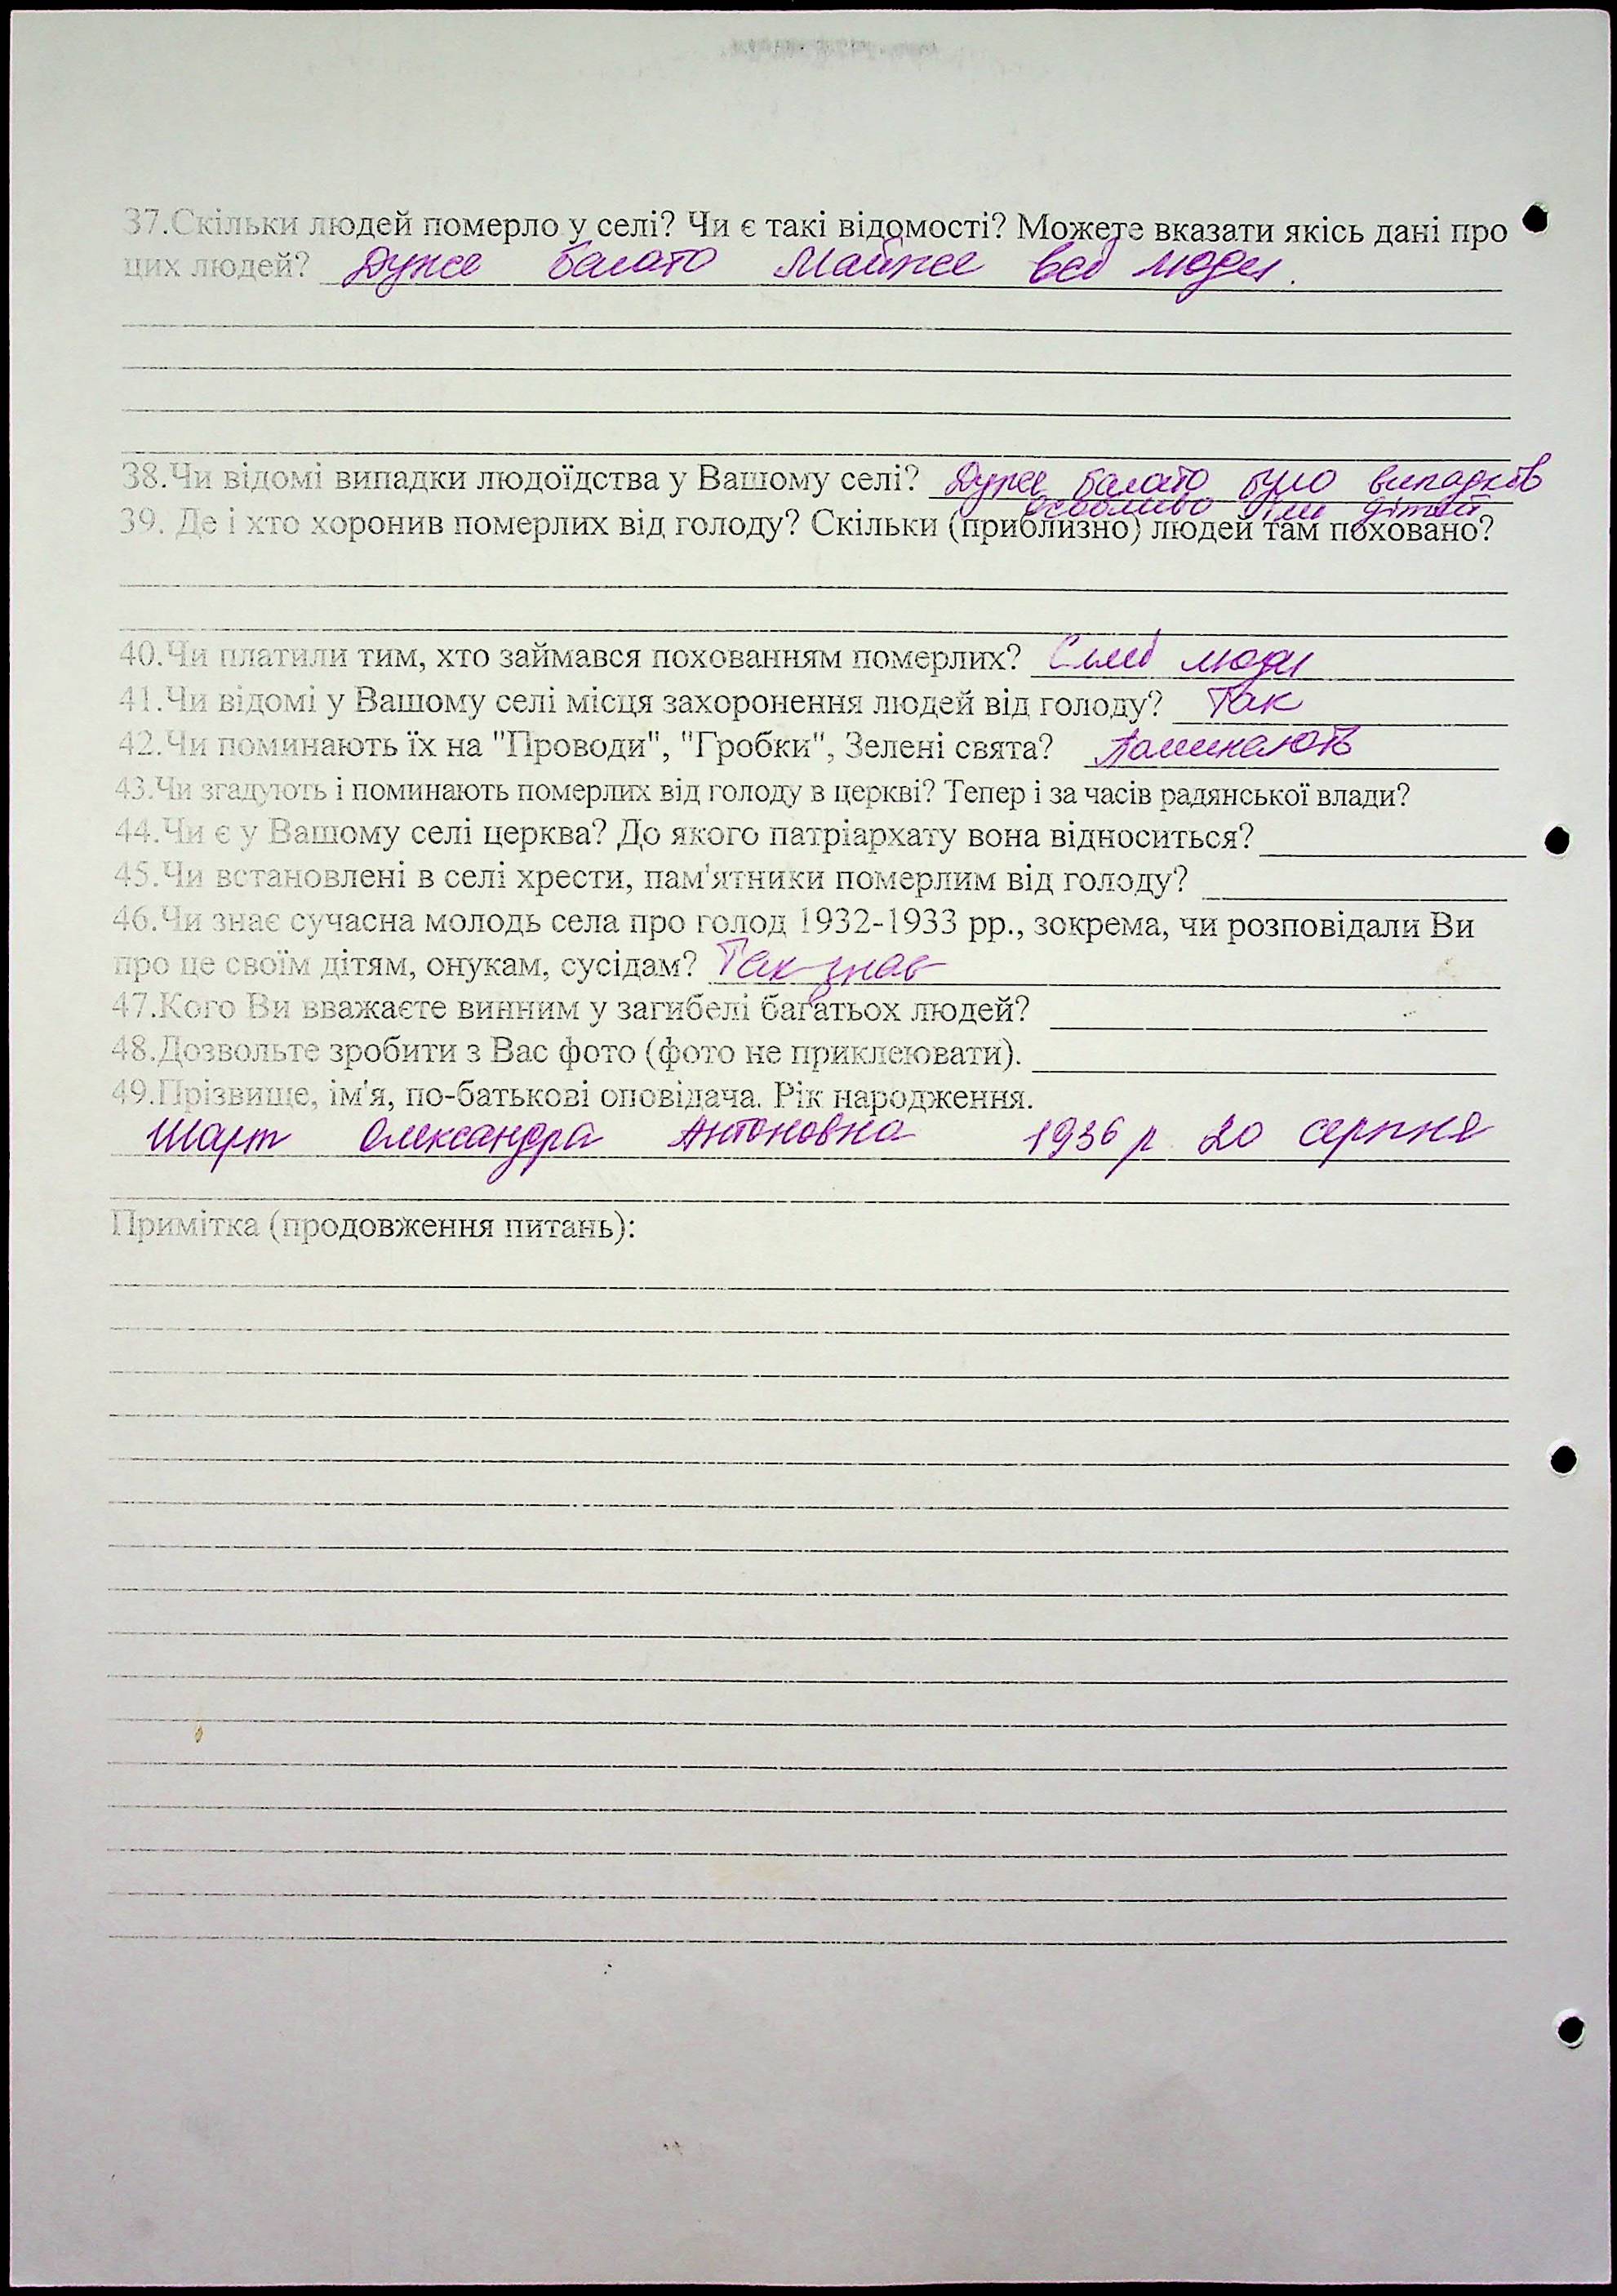 37.Скільки людей померло у селі? Чи є такі відомості? Можете вказати якісь дані про
цих людей? Дуже багато Майже всі люди.
38.Чи відомі випадки людоїдства у Вашому селі? Дуже багато було випадків
особливо їли дітей
39. Де і хто хоронив померлих від голоду? Скільки (приблизно) людей там поховано?
40.Чи платили тим, хто займався похованням померлих? Самі люди
41.Чи відомі у Вашому селі місця захоронення людей від голоду? Так
42.Чи поминають їх на "Проводи", "Гробки", Зелені свята? Поминають
43.Чи згадують і поминають померлих від голоду в церкві? Тепер і за часів радянської влади?
44.Чи є у Вашому селі церква? До якого патріархату вона відноситься?
45.Чи встановлені в селі хрести, пам'ятники померлим від голоду?
46.Чи знає сучасна молодь села про голод 1932-1933 рр., зокрема, чи розповідали Ви
про це своїм дітям, онукам, сусідам? Так знає
47.Кого Ви вважаєте винним у загибелі багатьох людей?
48.Дозвольте зробити з Вас фото (фото не приклеювати).
49.Прізвище, ім'я, по-батькові оповідача. Рік народження.
Шарт Олександра Антоновна 1936 р 20 серпня
Примітка (продовження питань):